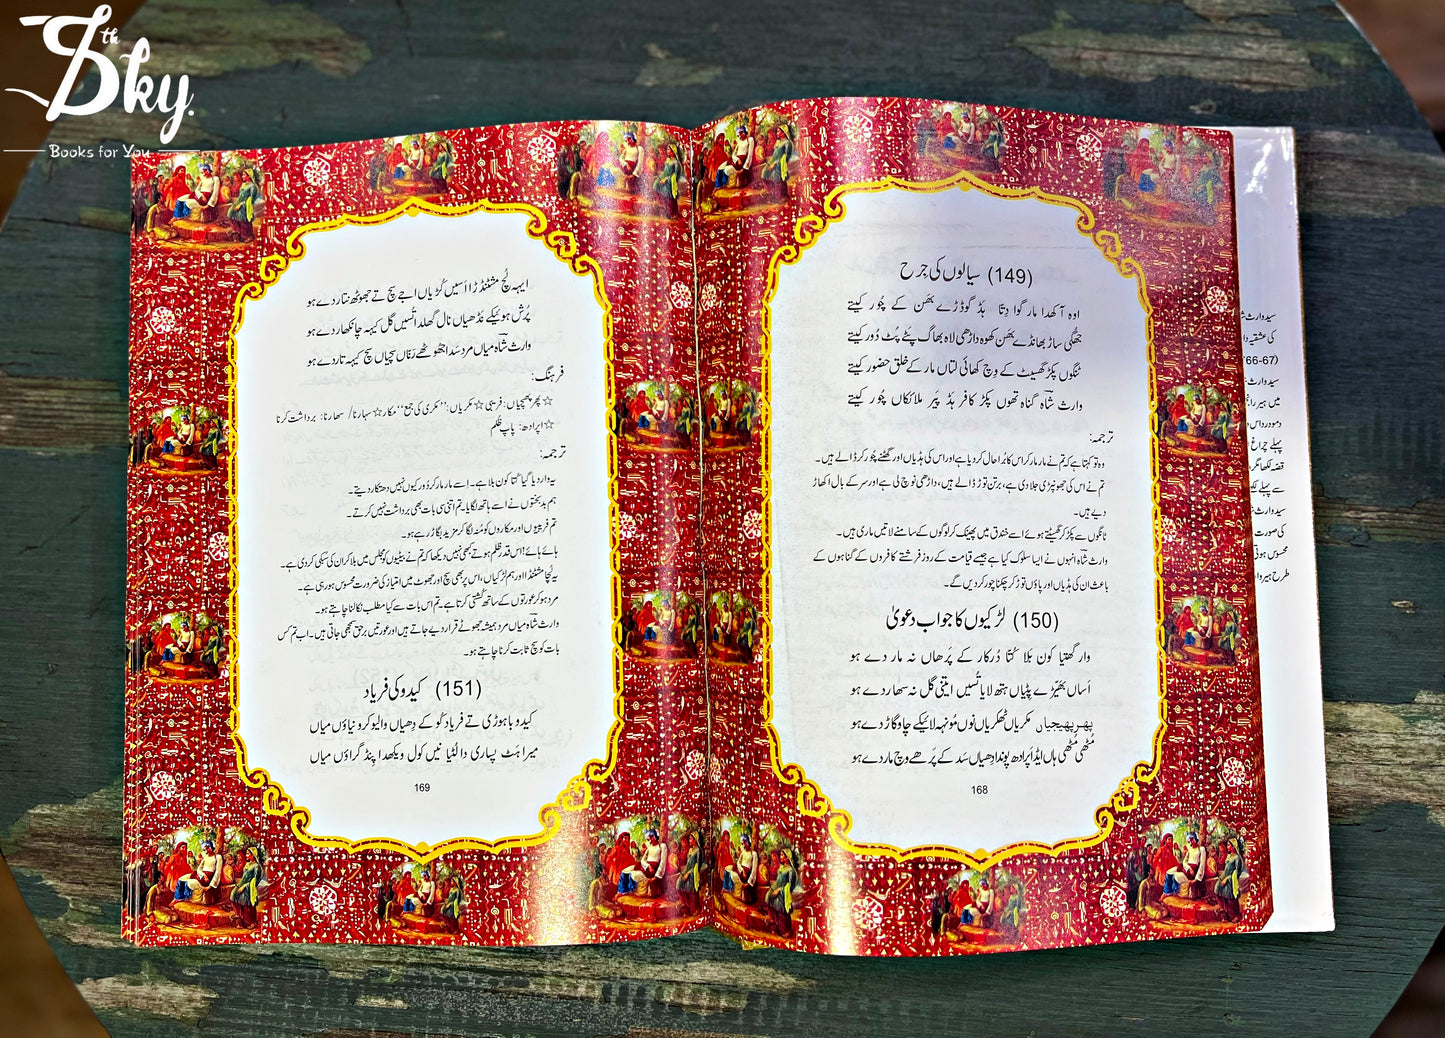 Sky th
Books for You
(149) سیالوں کی جِرح
اوہ آکھدا مار گوا دِتا ہڈ گوڈڑے بھَن کے چُور کیتے
جھُگی ساڑ بھانڈے بھَن کھوہ داڑھی لاہ بھاگ پَٹے پُٹ دُور کیتے
ٹنگوں پکڑ گھسیٹ کے وِچ کھائی لتاں مار کے خلق حضور کیتے
وارث شاہ گناہ تھوں پکڑ کافر ہڈ پیر ملائکاں چُور کیتے
ترجمہ:
وہ تو کہتا ہے کہ تم نے مار مار کر اس کا بُرا حال کر دیا ہے اور اس کی ہڈیاں اور گھٹنے چُور کر ڈالے ہیں۔
تم نے اس کی جھونپڑی جلا دی ہے، برتن توڑ ڈالے ہیں، داڑھی نوچ لی ہے اور سر کے بال اکھاڑ
دیے ہیں۔
ٹانگوں سے پکڑ کر گھسیٹتے ہوئے اسے خندق میں پھینک کر لوگوں کے سامنے لاتیں ماری ہیں۔
وارث شاہ انہوں نے ایسا سلوک کیا ہے جیسے قیامت کے روز فرشتے کافروں کے گناہوں کے
باعث ان کی ہڈیاں اور پاؤں توڑ کر چکنا چور کر دیں گے۔
(150) لڑکیوں کا جواب دعویٰ
وار گھتیا کون بَلا کُتا دُرکار کے پَرھاں نہ مار دے ہو
اَساں بھَیڑے پِٹیاں ہتھ لایا تُسیں ایتنی گل نہ سہار دے ہو
پھرپھیجیاں مکریاں ٹھکریاں نوں مُونہہ لائیکے چاوگاڑ دے ہو
مُٹھی مُٹھی ہاں ایڈا پرادھ پوندا دھیاں سَد کے پَرھے وِچ مار دے ہو
168
ایہہ لُچ مشٹنڈڑا اسیں کُڑیاں اجے سچ تے جھوٹھ نتار دے ہو
پُرش ہوئیکے نڈھیاں نال گھلدا تُسیں گل کیہہ چا نکھار دے ہو
وارث شاہ میاں مرد سَدا جھوٹھے رَناں سچیاں سچ کیہہ تار دے ہو
فرہنگ:
☆پھرپھیجیاں: فریبی ☆مکریاں: ''مکری کی جمع'' مکار ☆سہارنا/ سھارنا: برداشت کرنا
☆اپرادھ: پاپ ظُلم
ترجمہ:
یہ وار دیا گیا کُتا کون بلا ہے۔ اِسے مار مار کر دُور کیوں نہیں دھتکار دیتے۔
ہم بدبختوں نے اسے ہاتھ لگایا۔ تم اتنی سی بات بھی برداشت نہیں کرتے۔
تم فریبیوں اور مکاروں کو مُنہ لگا کر مزید بگاڑ رہے ہو۔
ہائے ہائے! اس قدر ظلم ہوتے کبھی نہیں دیکھا کہ تم نے بیٹیوں کو مجلس میں بلا کر ان کی سبکی کر دی ہے۔
یہ لُچا مشٹنڈا اور ہم لڑکیاں، اس پر بھی سچ اور جھوٹ میں امتیاز کی ضرورت محسوس ہو رہی ہے۔
مرد ہو کر عورتوں کے ساتھ کُشتی کرتا ہے۔ تم اس بات سے کیا مطلب نکالنا چاہتے ہو۔
وارث شاہ میاں مرد ہمیشہ جھوٹے قرار دیے جاتے ہیں اور عورتیں برحق سمجھی جاتی ہیں۔ اب تم کس
بات کو سچ ثابت کرنا چاہتے ہو۔
(151) کیدو کی فریاد
کیدو باہوڑی تے فریاد کُوکے دِھیاں والیو کرو نیاؤں میاں
میرا ہَٹ پساری دا لُٹیا نیں کول ویکھدا پنڈ گراؤں میاں
169
سید وارث
کی عشقیہ
66-67)
سید وارث
میں ہیر
پہلے چراغ
سے پہلے
کی صورت
محسوس ہوتی
طرح ہیر